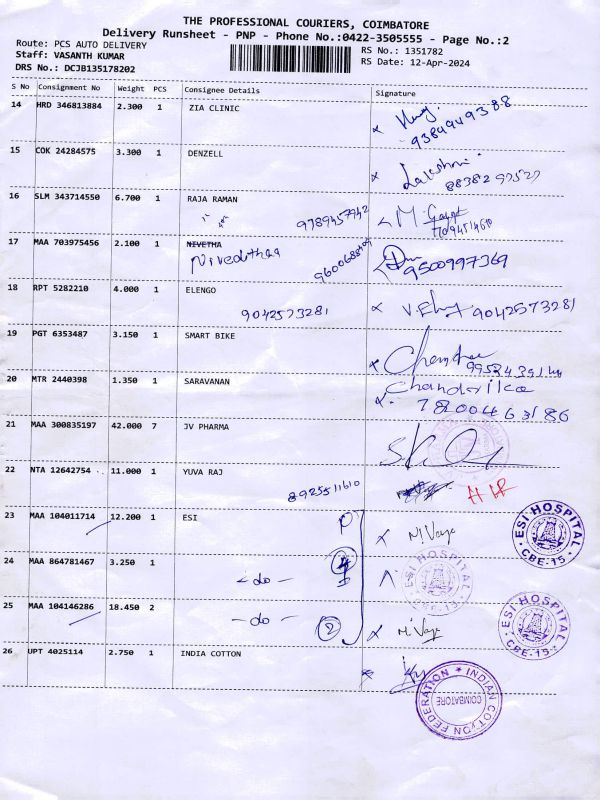 THE PROFESSIONAL COURIERS, COIMBATORE
Delivery Runsheet - PNP - Phone No.:0422-3505555 - Page No.:2
Route: PCS AUTO DELIVERY
RS No.: 1351782
Staff: VASANTH KUMAR
RS Date: 12-Apr-2024
DRS No.: DCJB135178202
S No Consignment No Weight PCS Consignee Details Signature
14 HRD 346813884 2.300 1 ZIA CLINIC
9384949388
15 COK 24284575 3.300 1 DENZELL
Lakshmi
16 SLM 343714550 6.700 1 RAJA RAMAN
9789457942
17 MAA 703975456 2.100 1 NIVETHA
Nivedithaa
9500997369
18 RPT 5282210 4.000 1 ELENGO
9042573281 9042573281
19 PGT 6353487 3.150 1 SMART BIKE
20 MTR 2440398 1.350 1 SARAVANAN
7820046 3186
21 MAA 300835197 42.000 7 JV PHARMA
22 NTA 12642754 11.000 1 YUVA RAJ
8925511610
23 MAA 104011714 12.200 1 ESI
ESI HOSPITAL
CBE-15
24 MAA 864781467 3.250 1
-do-
ESI HOSPITAL
CBE-15
25 MAA 104146286 18.450 2
-do-
2
ESI HOSPITAL
CBE-15
26 UPT 4025114 2.750 1 INDIA COTTON
INDIAN COTTON FEDERATION
COIMBATORE